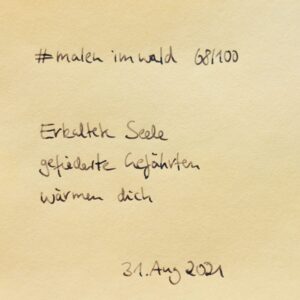 #malen im wald 68/100
Erkaltete Seele
gefiederte Gefährten
wärmen dich
31. Aug 2021